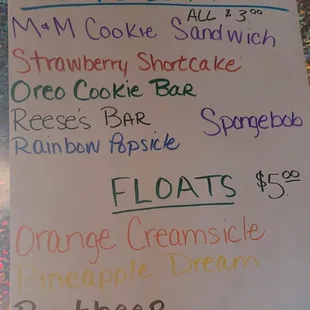 ALL $ 3.00
M&M Cookie Sandwich
Strawberry Shortcake
Oreo Cookie Bar
Reese's BAR
Spongebob
Rainbow Popsicle
FLOATS $5.00
Orange Creamsicle
Pineapple Dream